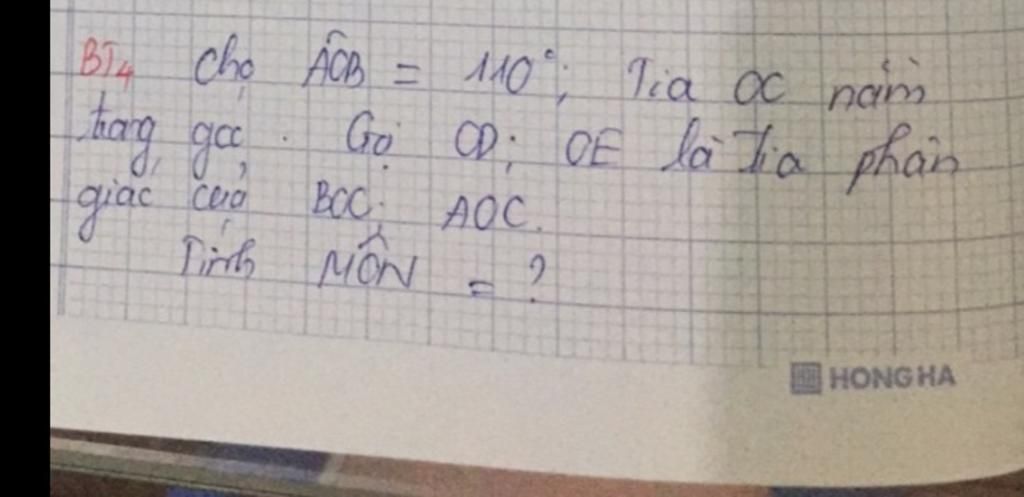 BT4 Cho AÔB = 110°; Tia OC nằm
trong góc. Gọi OD; OE là Tia phân
giác của BOC; AOC.
Tính MÔN = ?
HONG HA